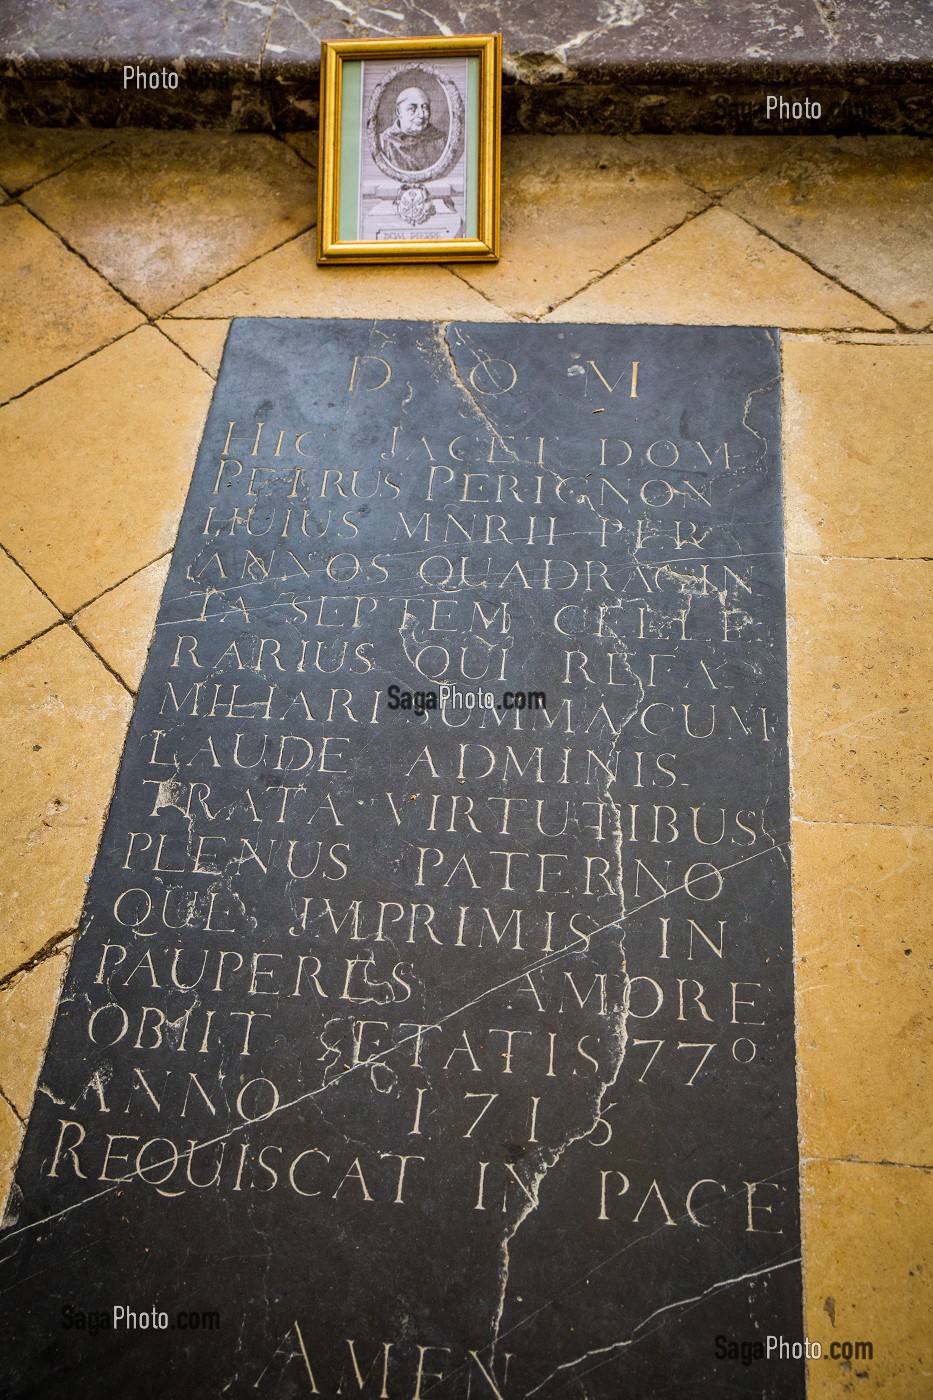 Photo
Photo
DOM PIERRE
D O M
HIC JACET DOM
PETRUS PERIGNON
HUIUS MNRII PER
ANNOS QUADRAGIN
TA SEPTEM CELLE
RARIUS QUI RE FA
MILIARI SUMMA CUM
LAUDE ADMINIS
TRATA VIRTUTIBUS
PLENUS PATERNO
QUE IMPRIMIS IN
PAUPERES AMORE
OBIIT ÆTATIS 77º
ANNO 1715
REQUISCAT IN PACE
AMEN
SagaPhoto.com
SagaPhoto.com
SagaPhoto.com